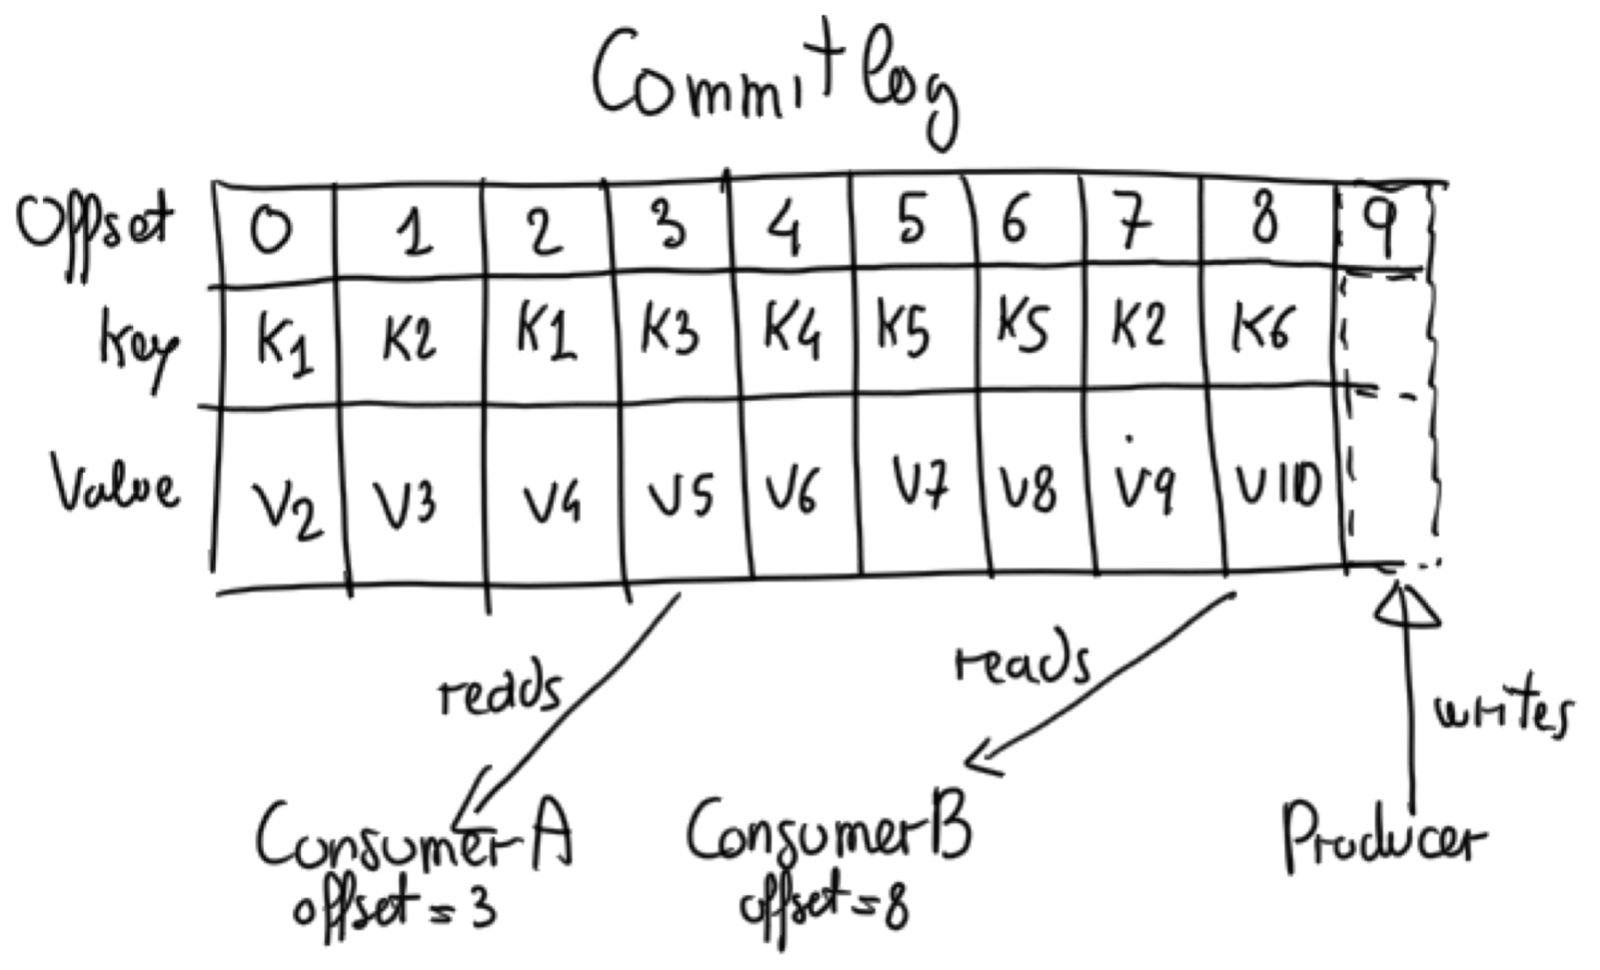 Commit log
Offset 0 1 2 3 4 5 6 7 8 9
Key K1 K2 K1 K3 K4 K5 K5 K2 K6
Value V2 V3 V4 V5 V6 V7 V8 V9 V10
reads
reads
writes
Consumer A
offset = 3
Consumer B
offset = 8
Producer